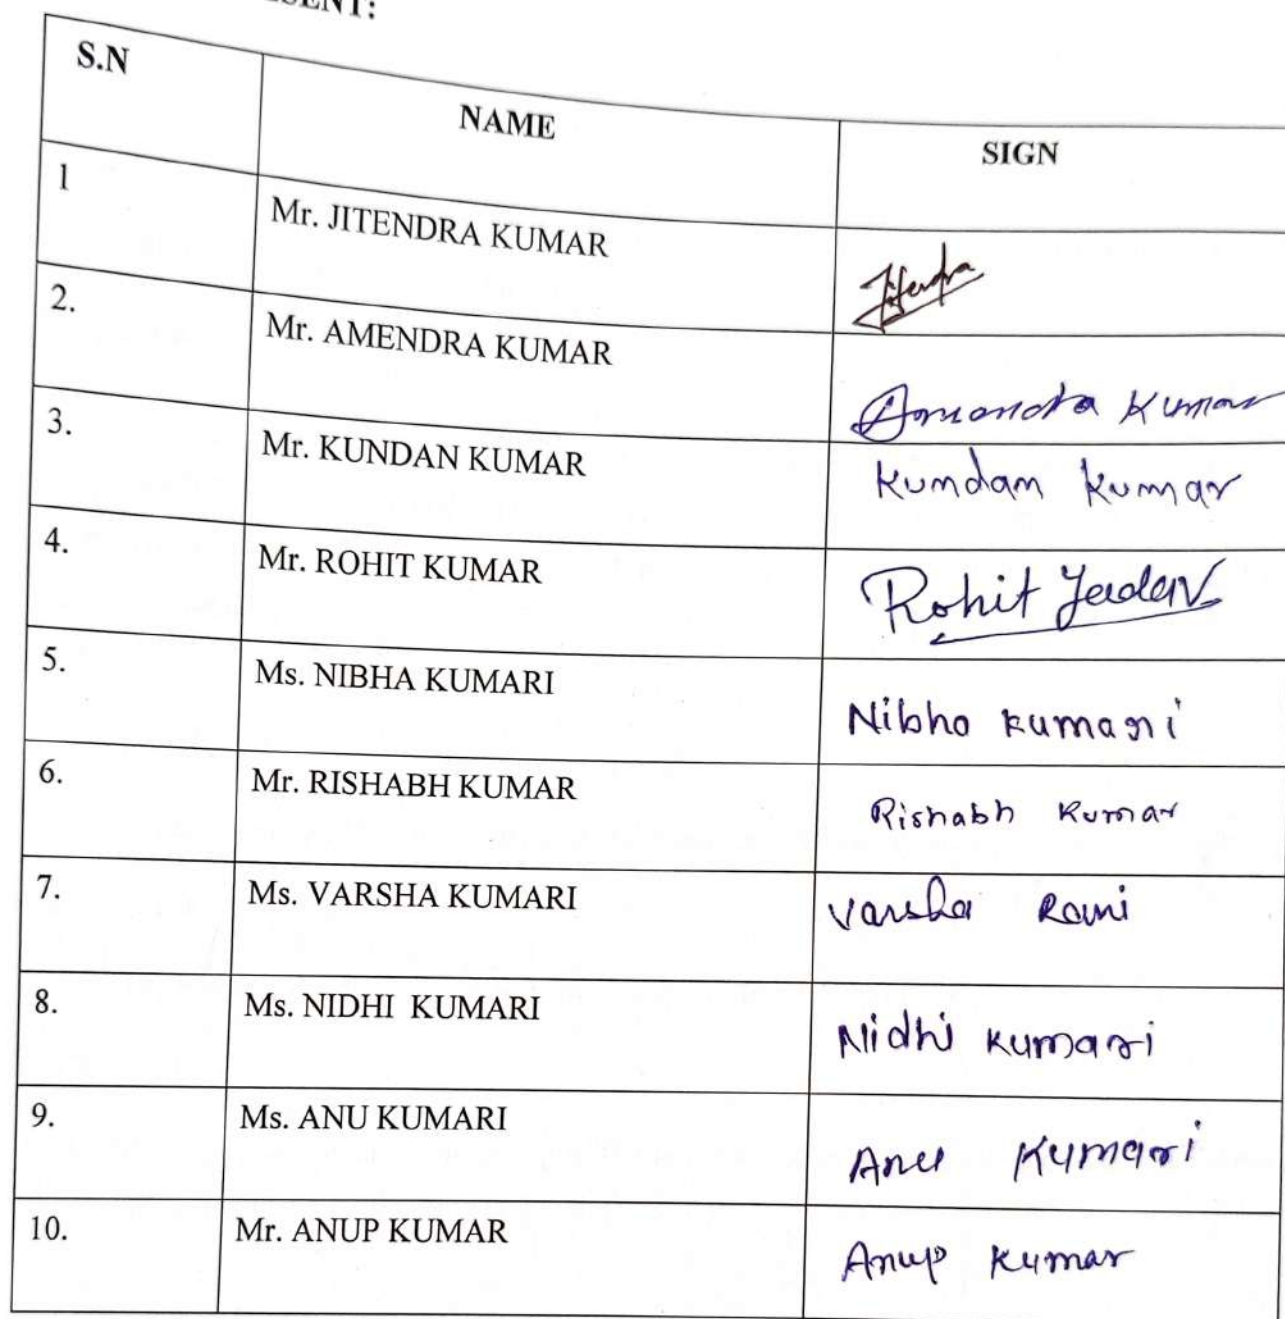 ESENT:
S.N NAME SIGN
1 Mr. JITENDRA KUMAR Jitendra
2. Mr. AMENDRA KUMAR Amendra Kumar
3. Mr. KUNDAN KUMAR Kundan Kumar
4. Mr. ROHIT KUMAR Rohit Yadav
5. Ms. NIBHA KUMARI Nibha Kumari
6. Mr. RISHABH KUMAR Rishabh Kumar
7. Ms. VARSHA KUMARI Varsha Rani
8. Ms. NIDHI KUMARI Nidhi Kumari
9. Ms. ANU KUMARI Anu Kumari
10. Mr. ANUP KUMAR Anup Kumar